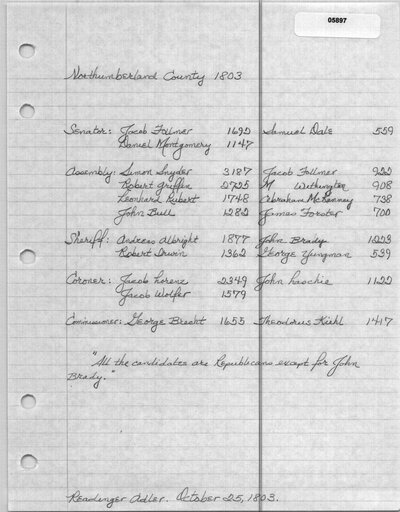 05897
Northumberland County 1803
Senator: Jacob Follmer 1692 Samuel Dale 559
Daniel Montgomery 1147
Assembly: Simon Snyder 3187 Jacob Follmer 922
Robert Giffin 2725 M Withington 908
Leonhard Rupert 1748 Abraham McKinney 738
John Bull 1282 James Forster 700
Sheriff: Andreas Albright 1877 John Brady 1223
Robert Irwin 1362 George Yungman 539
Coroner: Jacob Lorenz 2349 John Laschie 1122
Jacob Wolfer 1579
Commissioner: George Brecht 1655 Theodorus Kiehl 1417
"All the candidates are Republicans except for John
Brady."
Readinger Adler. October 25, 1803.